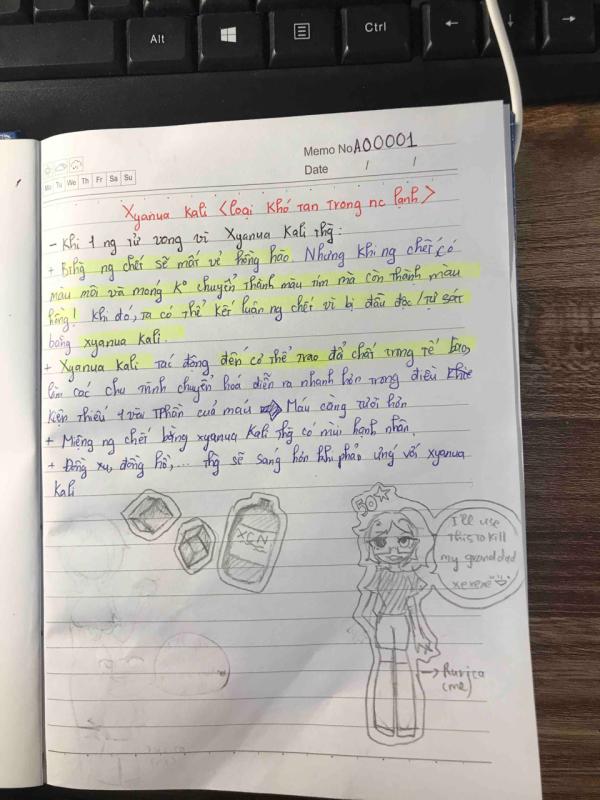 Alt
Ctrl
Memo No A00001
Mo Tu We Th Fr Sa Su
Date / /
Xyanua Kali <loại khó tan trong nc lạnh>
- Khi 1 ng tử vong vì Xyanua Kali thg:
+ Bthg ng chết sẽ mất vẻ hồng hào. Nhưng khi ng chết có
màu môi và móng k° chuyển thành màu tím mà còn thành màu
hồng! Khi đó, ta có thể kết luận ng chết vì bị đầu độc / tự sát
bằng xyanua kali.
+ Xyanua kali tác động đến cơ thể trao đổi chất trong tế bào,
làm các chu trình chuyển hoá diễn ra nhanh hơn trong điều
kiện thiếu 1 vài thần của máu Máu càng tươi hơn
+ Miệng ng chết bằng xyanua kali thg có mùi hạnh nhân.
+ Đồng xu, đồng hồ,... thg sẽ sáng hơn khi phản ứng với xyanua
kali
XCN
50
I'll use
this to kill
my granddad
xexexe
→ Rurica
(me)